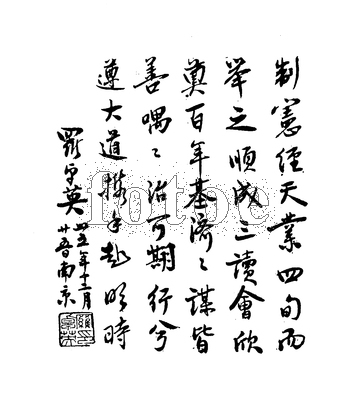 制憲經天業四旬而
举之順成三讀會欣
奠百年基濟〻謀皆
善喁〻治可期行兮
遵大道攜手赴明時
羅卓英
卅五年十二月
南京
fotoe